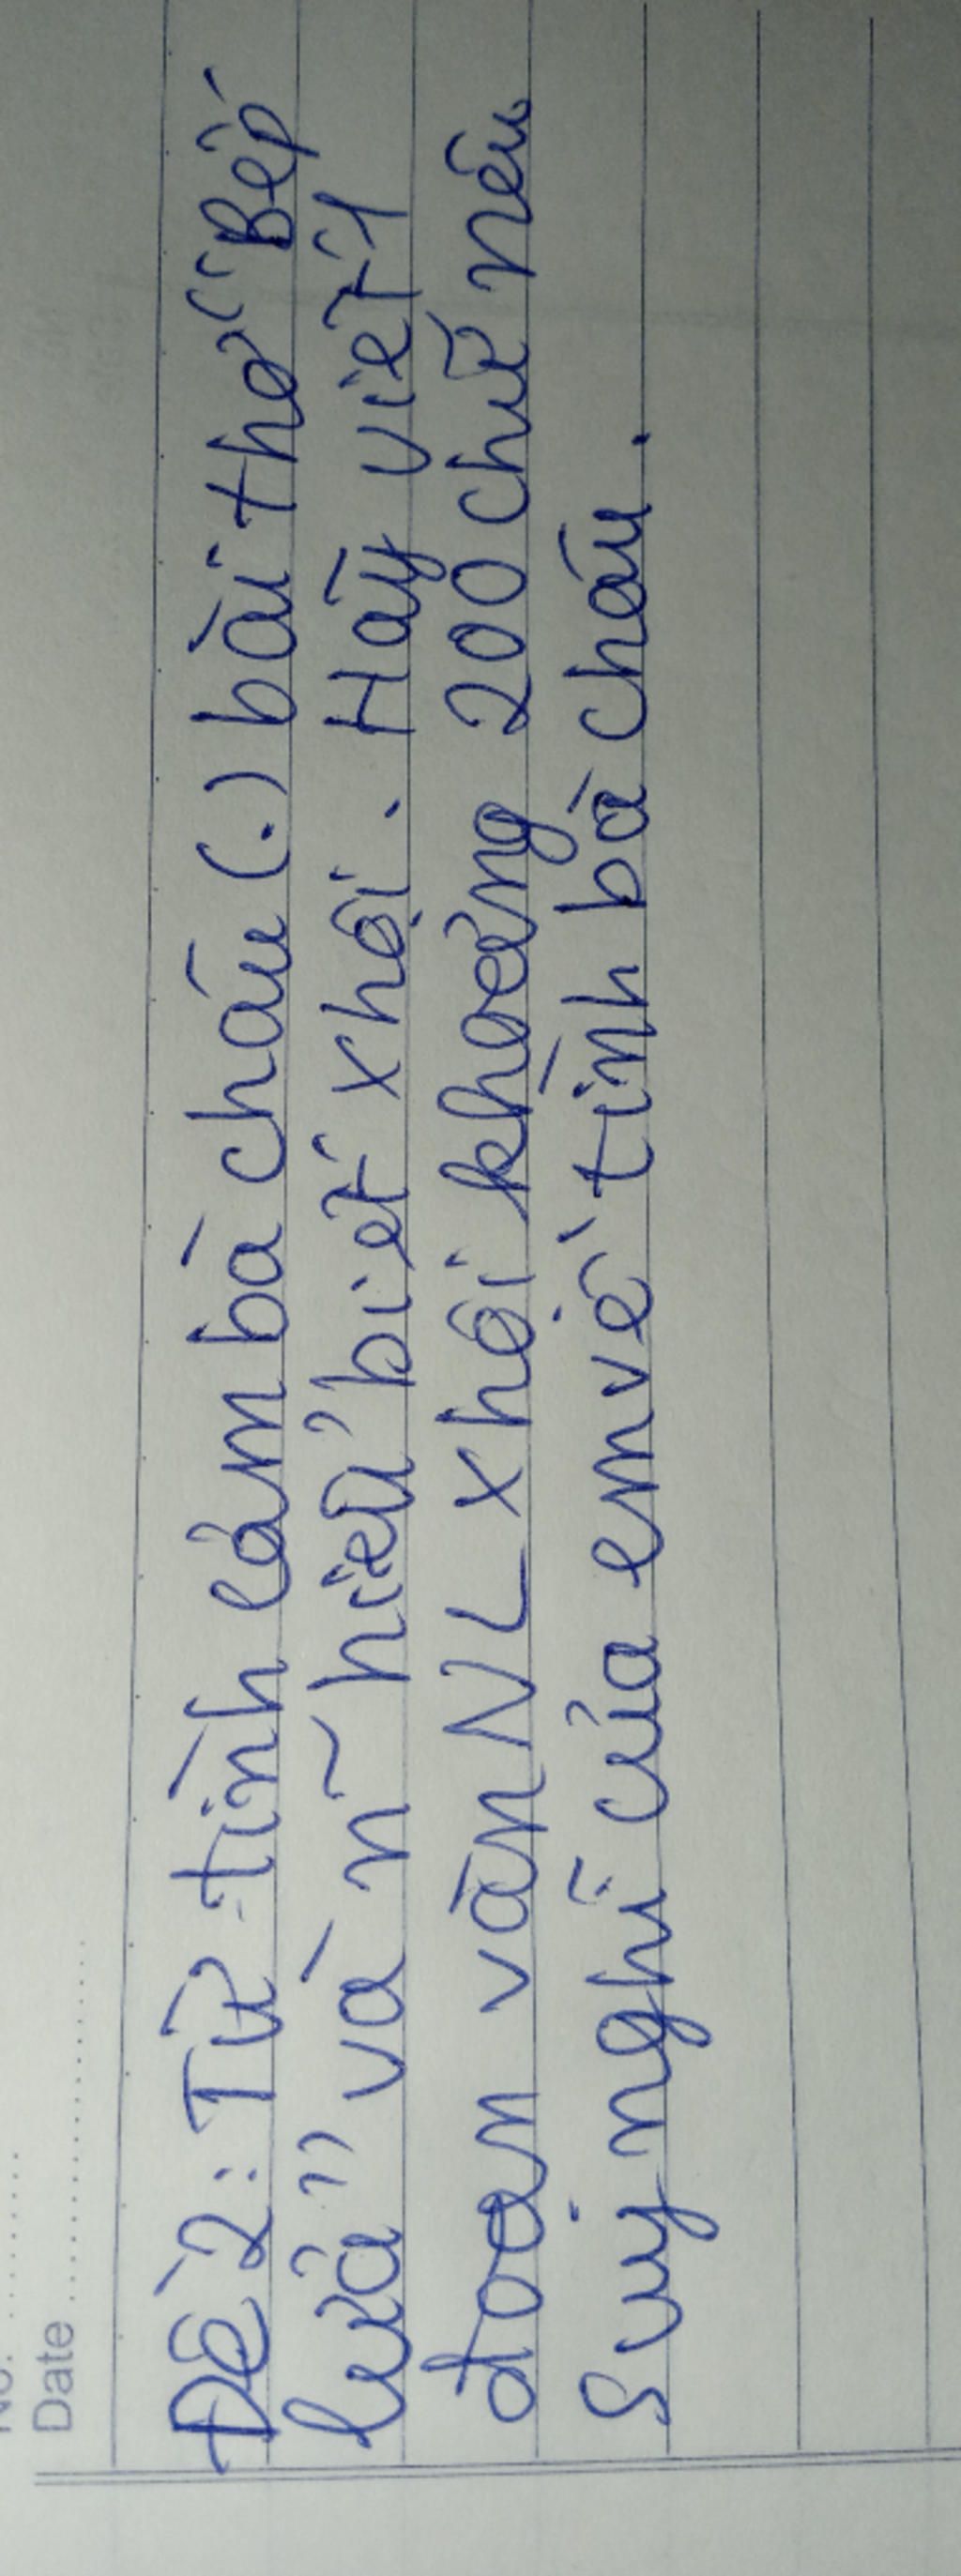 No. ........
Date ........................
Đề 2: Từ tình cảm bà cháu (.) bài thơ "Bếp
lửa" và n~ hiểu biết xhội. Hãy viết 1
đoạn văn NL xhội khoảng 200 chữ nêu
suy nghĩ của em về tình bà cháu.